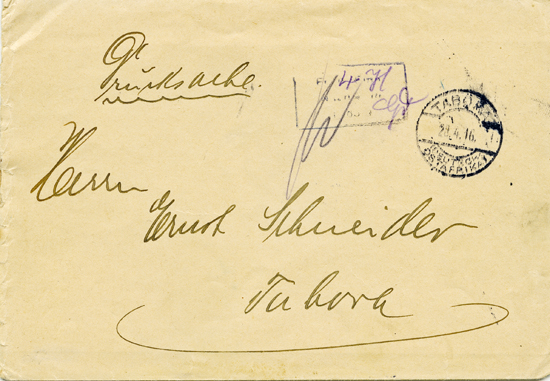 Drucksache.
4 H
TABORA
29.4.16.
DEUTSCH-
OSTAFRIKA
Herrn
Ernst Schneider
Tabora